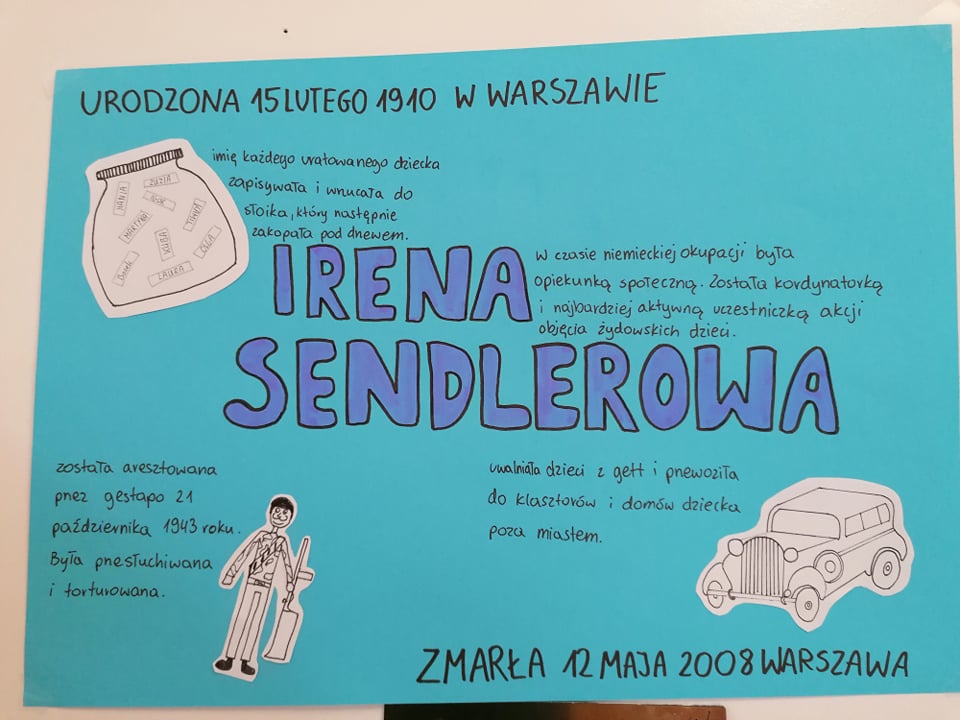 URODZONA 15 LUTEGO 1910 W WARSZAWIE
imię każdego uratowanego dziecka
zapisywała i wrzucała do
słoika, który następnie
zakopała pod drzewem.
HANIA
ZUZIA
IGOR
MARTYNA
TYMON
KUBA
OLGA
LAURA
IRENA
SENDLEROWA
w czasie niemieckiej okupacji była
opiekunką społeczną. Została kordynatorką
i najbardziej aktywną uczestniczką akcji
objęcia żydowskich dzieci.
została aresztowana
przez gestapo 21
października 1943 roku.
Była przesłuchiwana
i torturowana.
uwalniała dzieci z gett i przewoziła
do klasztorów i domów dziecka
poza miastem.
ZMARŁA 12 MAJA 2008 WARSZAWA